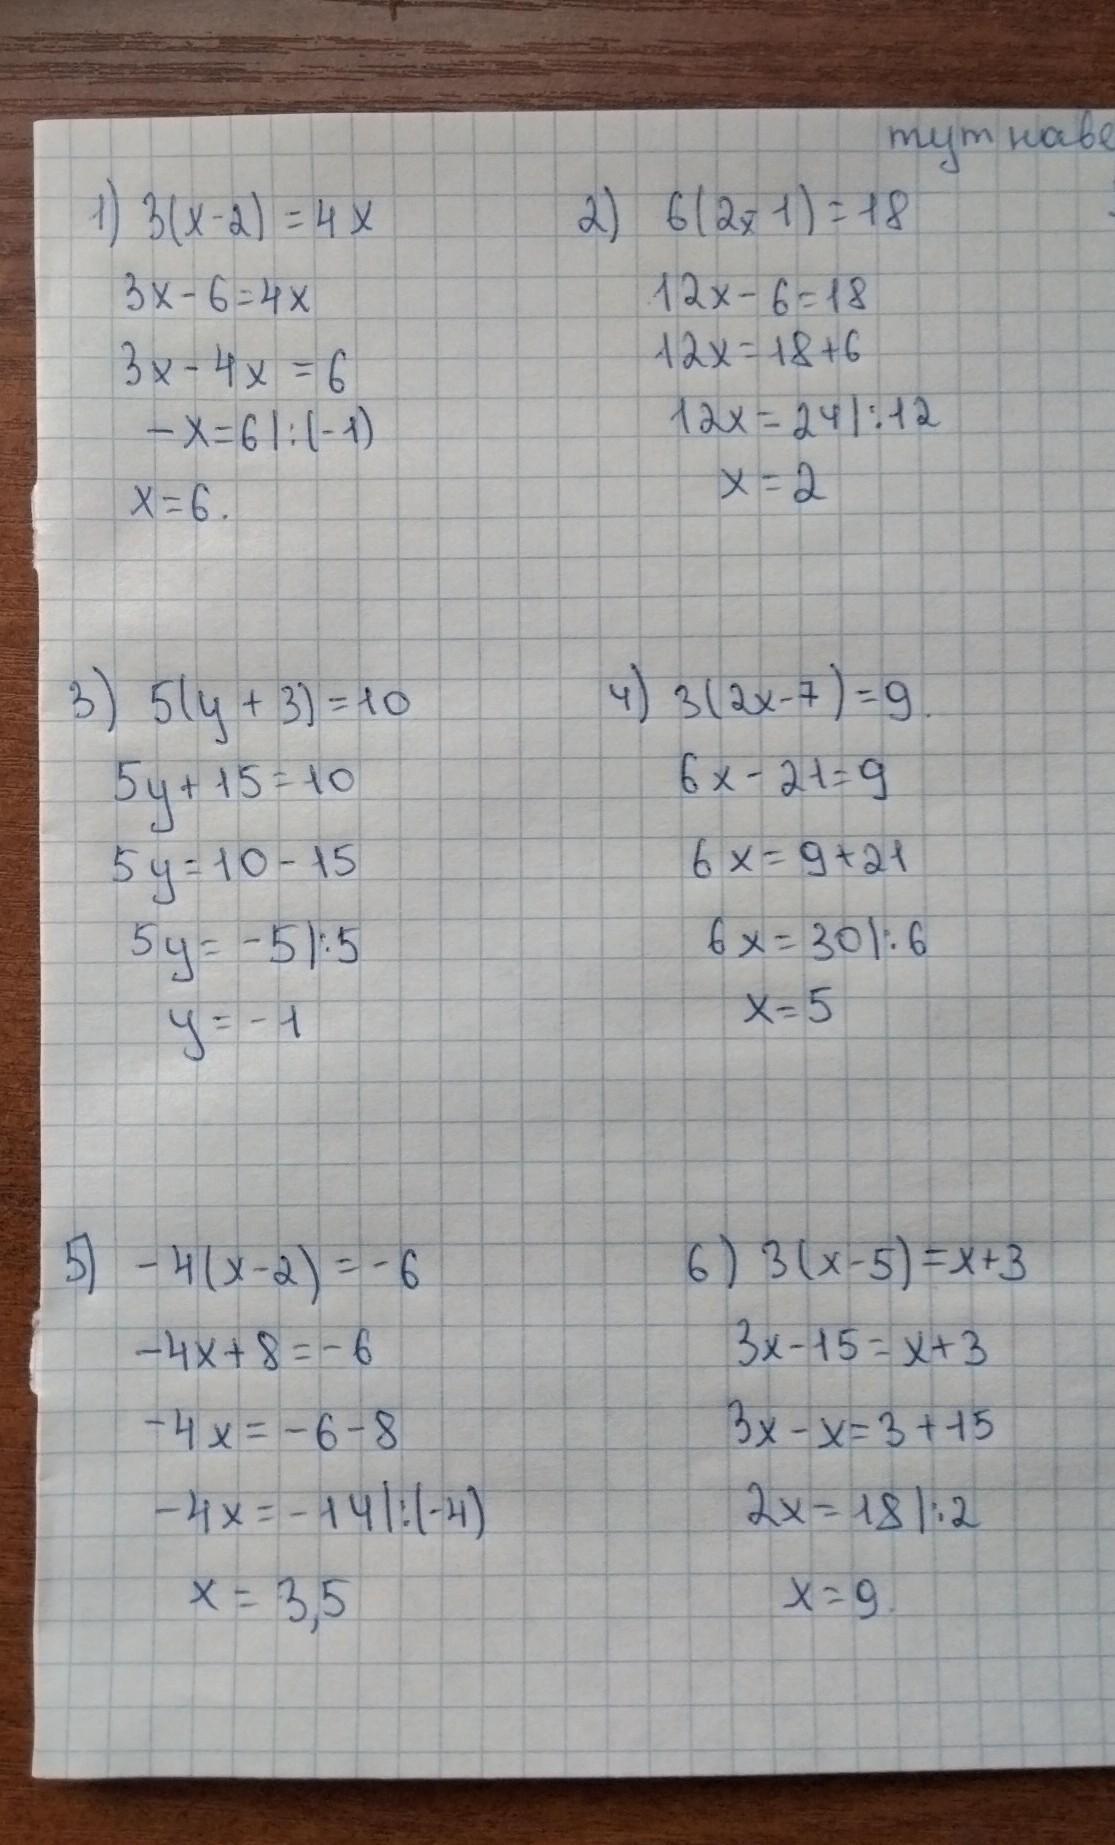 1) 3(x-2)=4x
3x-6=4x
3x-4x=6
-x=6|:(-1)
x=6.
2) 6(2x-1)=18
12x-6=18
12x=18+6
12x=24|:12
x=2
3) 5(y+3)=10
5y+15=10
5y=10-15
5y=-5|:5
y=-1
4) 3(2x-7)=9.
6x-21=9
6x=9+21
6x=30|:6
x=5
5) -4(x-2)=-6
-4x+8=-6
-4x=-6-8
-4x=-14|:(-4)
x=3,5
6) 3(x-5)=x+3
3x-15=x+3
3x-x=3+15
2x=18|:2
x=9.
тут